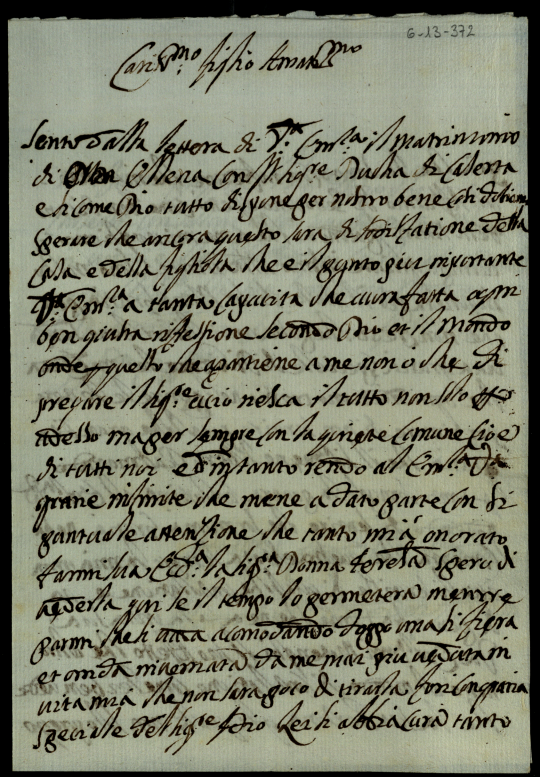 6-13-372
Cariss.mo figlio Amatiss.mo
Sento dalla lettera di V.ra Em.za il Matrimonio
di Ellena Con il Sig.re Ducha di Caserta
e si come Dio tutto dispone per nostro bene così dobiamo
sperare che ancora questo sara di sodisfatione della
Casa e della figliola che è il punto piu importante
V.ra Em.za a tanta capacita che avra fatta ogni
ben giusta riflessione secondo Dio et il Mondo
onde questo che apartiene a me non o che di
pregare il Sig.re acio riesca il tutto non solo
adesso ma per sempre con la quiete comune cioe
di tutti noi e d intanto rendo al Em.za V.ra
gratie infinite che mene a dato parte con si
puntuale attenzione che tanto mi a onorato
farmi sua Ecc.a la Sig.ra Donna Teresa spero di
averla qui se il tempo lo permetera mentre
parmi che si vada acomodando doppo una si fiera
et orrida invernata da me mai piu veduta in
vita mia che non sara poco di tirarla fori con grazia
speciale del Sig.re Idio Lei si abbia cura tanto